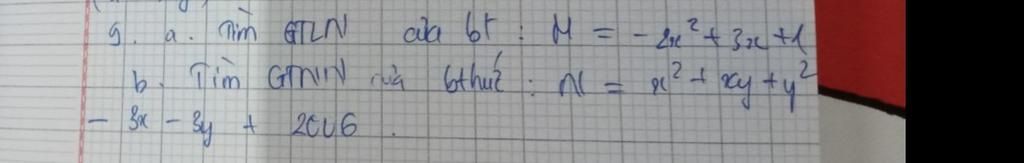 9. a. Tìm GTLN của bt : M = -2x² + 3x + 1
b. Tìm GTNN của bthức : N = x² + xy + y²
- 3x - 3y + 2006.